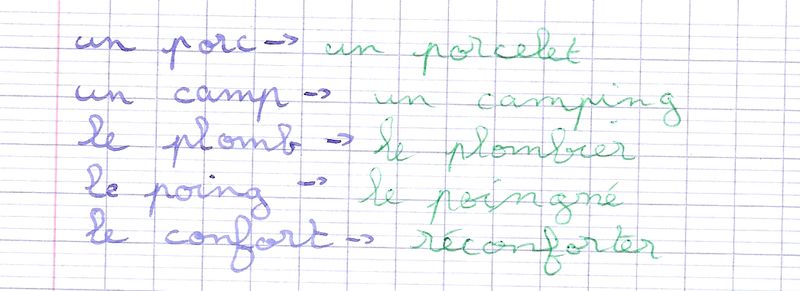 un porc → un porcelet
un camp → un camping
le plomb → le plombier
le poing → le poingné
le confort → réconforter